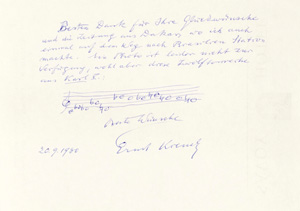 Besten Dank für Ihre Glückwünsche
und die Zeitung aus Dakar, wo ich auch
einmal auf dem Weg nach Brasilien Station
machte. Ein Photo ist leider nicht zur
Verfügung, wohl aber diese Zwölftonreihe
aus
Beste Wünsche
20.9.1980 Ernst Krenek